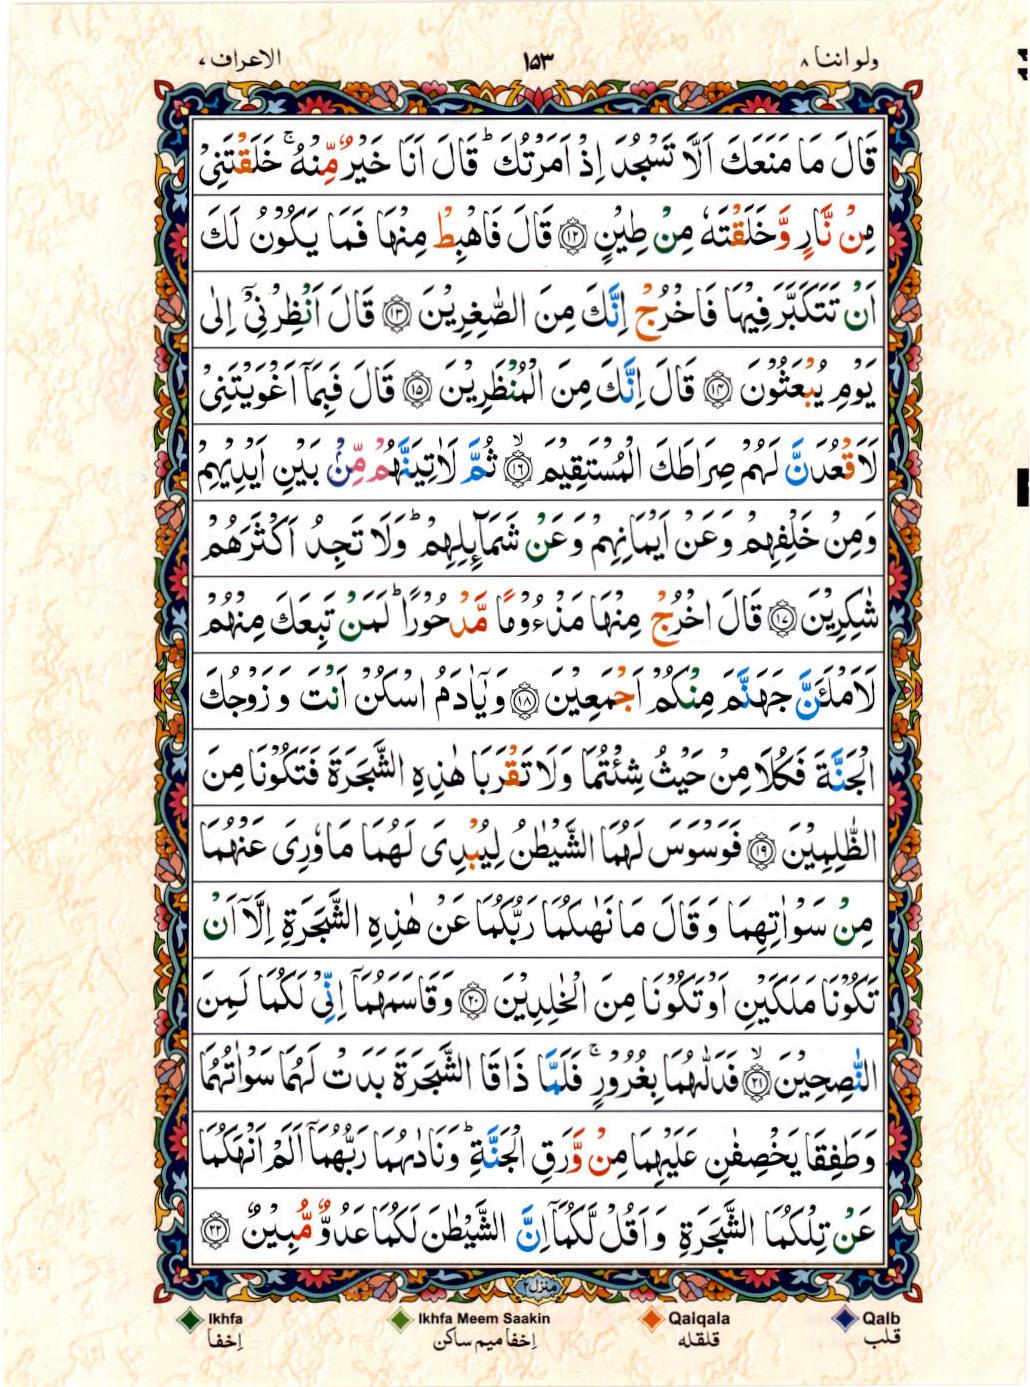 ولواننا ٨
١٥٣
الاعراف ٧
قَالَ مَا مَنَعَكَ اَلَّا تَسْجُدَ اِذْ اَمَرْتُكَ ؕ قَالَ اَنَا خَيْرٌ مِّنْهُ ۚ خَلَقْتَنِیْ
مِنْ نَّارٍ وَّخَلَقْتَهٗ مِنْ طِيْنٍ ﴿١٢﴾ قَالَ فَاهْبِطْ مِنْهَا فَمَا يَكُوْنُ لَكَ
اَنْ تَتَكَبَّرَ فِيْهَا فَاخْرُجْ اِنَّكَ مِنَ الصّٰغِرِيْنَ ﴿١٣﴾ قَالَ اَنْظِرْنِیْۤ اِلٰى
يَوْمِ يُبْعَثُوْنَ ﴿١٤﴾ قَالَ اِنَّكَ مِنَ الْمُنْظَرِيْنَ ﴿١٥﴾ قَالَ فَبِمَاۤ اَغْوَيْتَنِیْ
لَاَقْعُدَنَّ لَهُمْ صِرَاطَكَ الْمُسْتَقِيْمَ ﴿١٦﴾ۙ ثُمَّ لَاٰتِيَنَّهُمْ مِّنْۢ بَيْنِ اَيْدِيْهِمْ
وَمِنْ خَلْفِهِمْ وَعَنْ اَيْمَانِهِمْ وَعَنْ شَمَآئِلِهِمْ ؕ وَلَا تَجِدُ اَكْثَرَهُمْ
شٰكِرِيْنَ ﴿١٧﴾ قَالَ اخْرُجْ مِنْهَا مَذْءُوْمًا مَّدْحُوْرًا ؕ لَمَنْ تَبِعَكَ مِنْهُمْ
لَاَمْلَئَنَّ جَهَنَّمَ مِنْكُمْ اَجْمَعِيْنَ ﴿١٨﴾ وَيٰۤاٰدَمُ اسْكُنْ اَنْتَ وَزَوْجُكَ
الْجَنَّةَ فَكُلَا مِنْ حَيْثُ شِئْتُمَا وَلَا تَقْرَبَا هٰذِهِ الشَّجَرَةَ فَتَكُوْنَا مِنَ
الظّٰلِمِيْنَ ﴿١٩﴾ فَوَسْوَسَ لَهُمَا الشَّيْطٰنُ لِيُبْدِیَ لَهُمَا مَا وٗرِیَ عَنْهُمَا
مِنْ سَوْاٰتِهِمَا وَقَالَ مَا نَهٰىكُمَا رَبُّكُمَا عَنْ هٰذِهِ الشَّجَرَةِ اِلَّاۤ اَنْ
تَكُوْنَا مَلَكَيْنِ اَوْ تَكُوْنَا مِنَ الْخٰلِدِيْنَ ﴿٢٠﴾ وَقَاسَمَهُمَاۤ اِنِّیْ لَكُمَا لَمِنَ
النّٰصِحِيْنَ ﴿٢١﴾ۙ فَدَلّٰىهُمَا بِغُرُوْرٍ ۚ فَلَمَّا ذَاقَا الشَّجَرَةَ بَدَتْ لَهُمَا سَوْاٰتُهُمَا
وَطَفِقَا يَخْصِفٰنِ عَلَيْهِمَا مِنْ وَّرَقِ الْجَنَّةِ ؕ وَنَادٰىهُمَا رَبُّهُمَاۤ اَلَمْ اَنْهَكُمَا
عَنْ تِلْكُمَا الشَّجَرَةِ وَاَقُلْ لَّكُمَاۤ اِنَّ الشَّيْطٰنَ لَكُمَا عَدُوٌّ مُّبِيْنٌ ﴿٢٢﴾
منزل ٢
Ikhfa Ikhfa Meem Saakin Qalqala Qalb
اِخفا اِخفا میم ساکن قلقله قلب